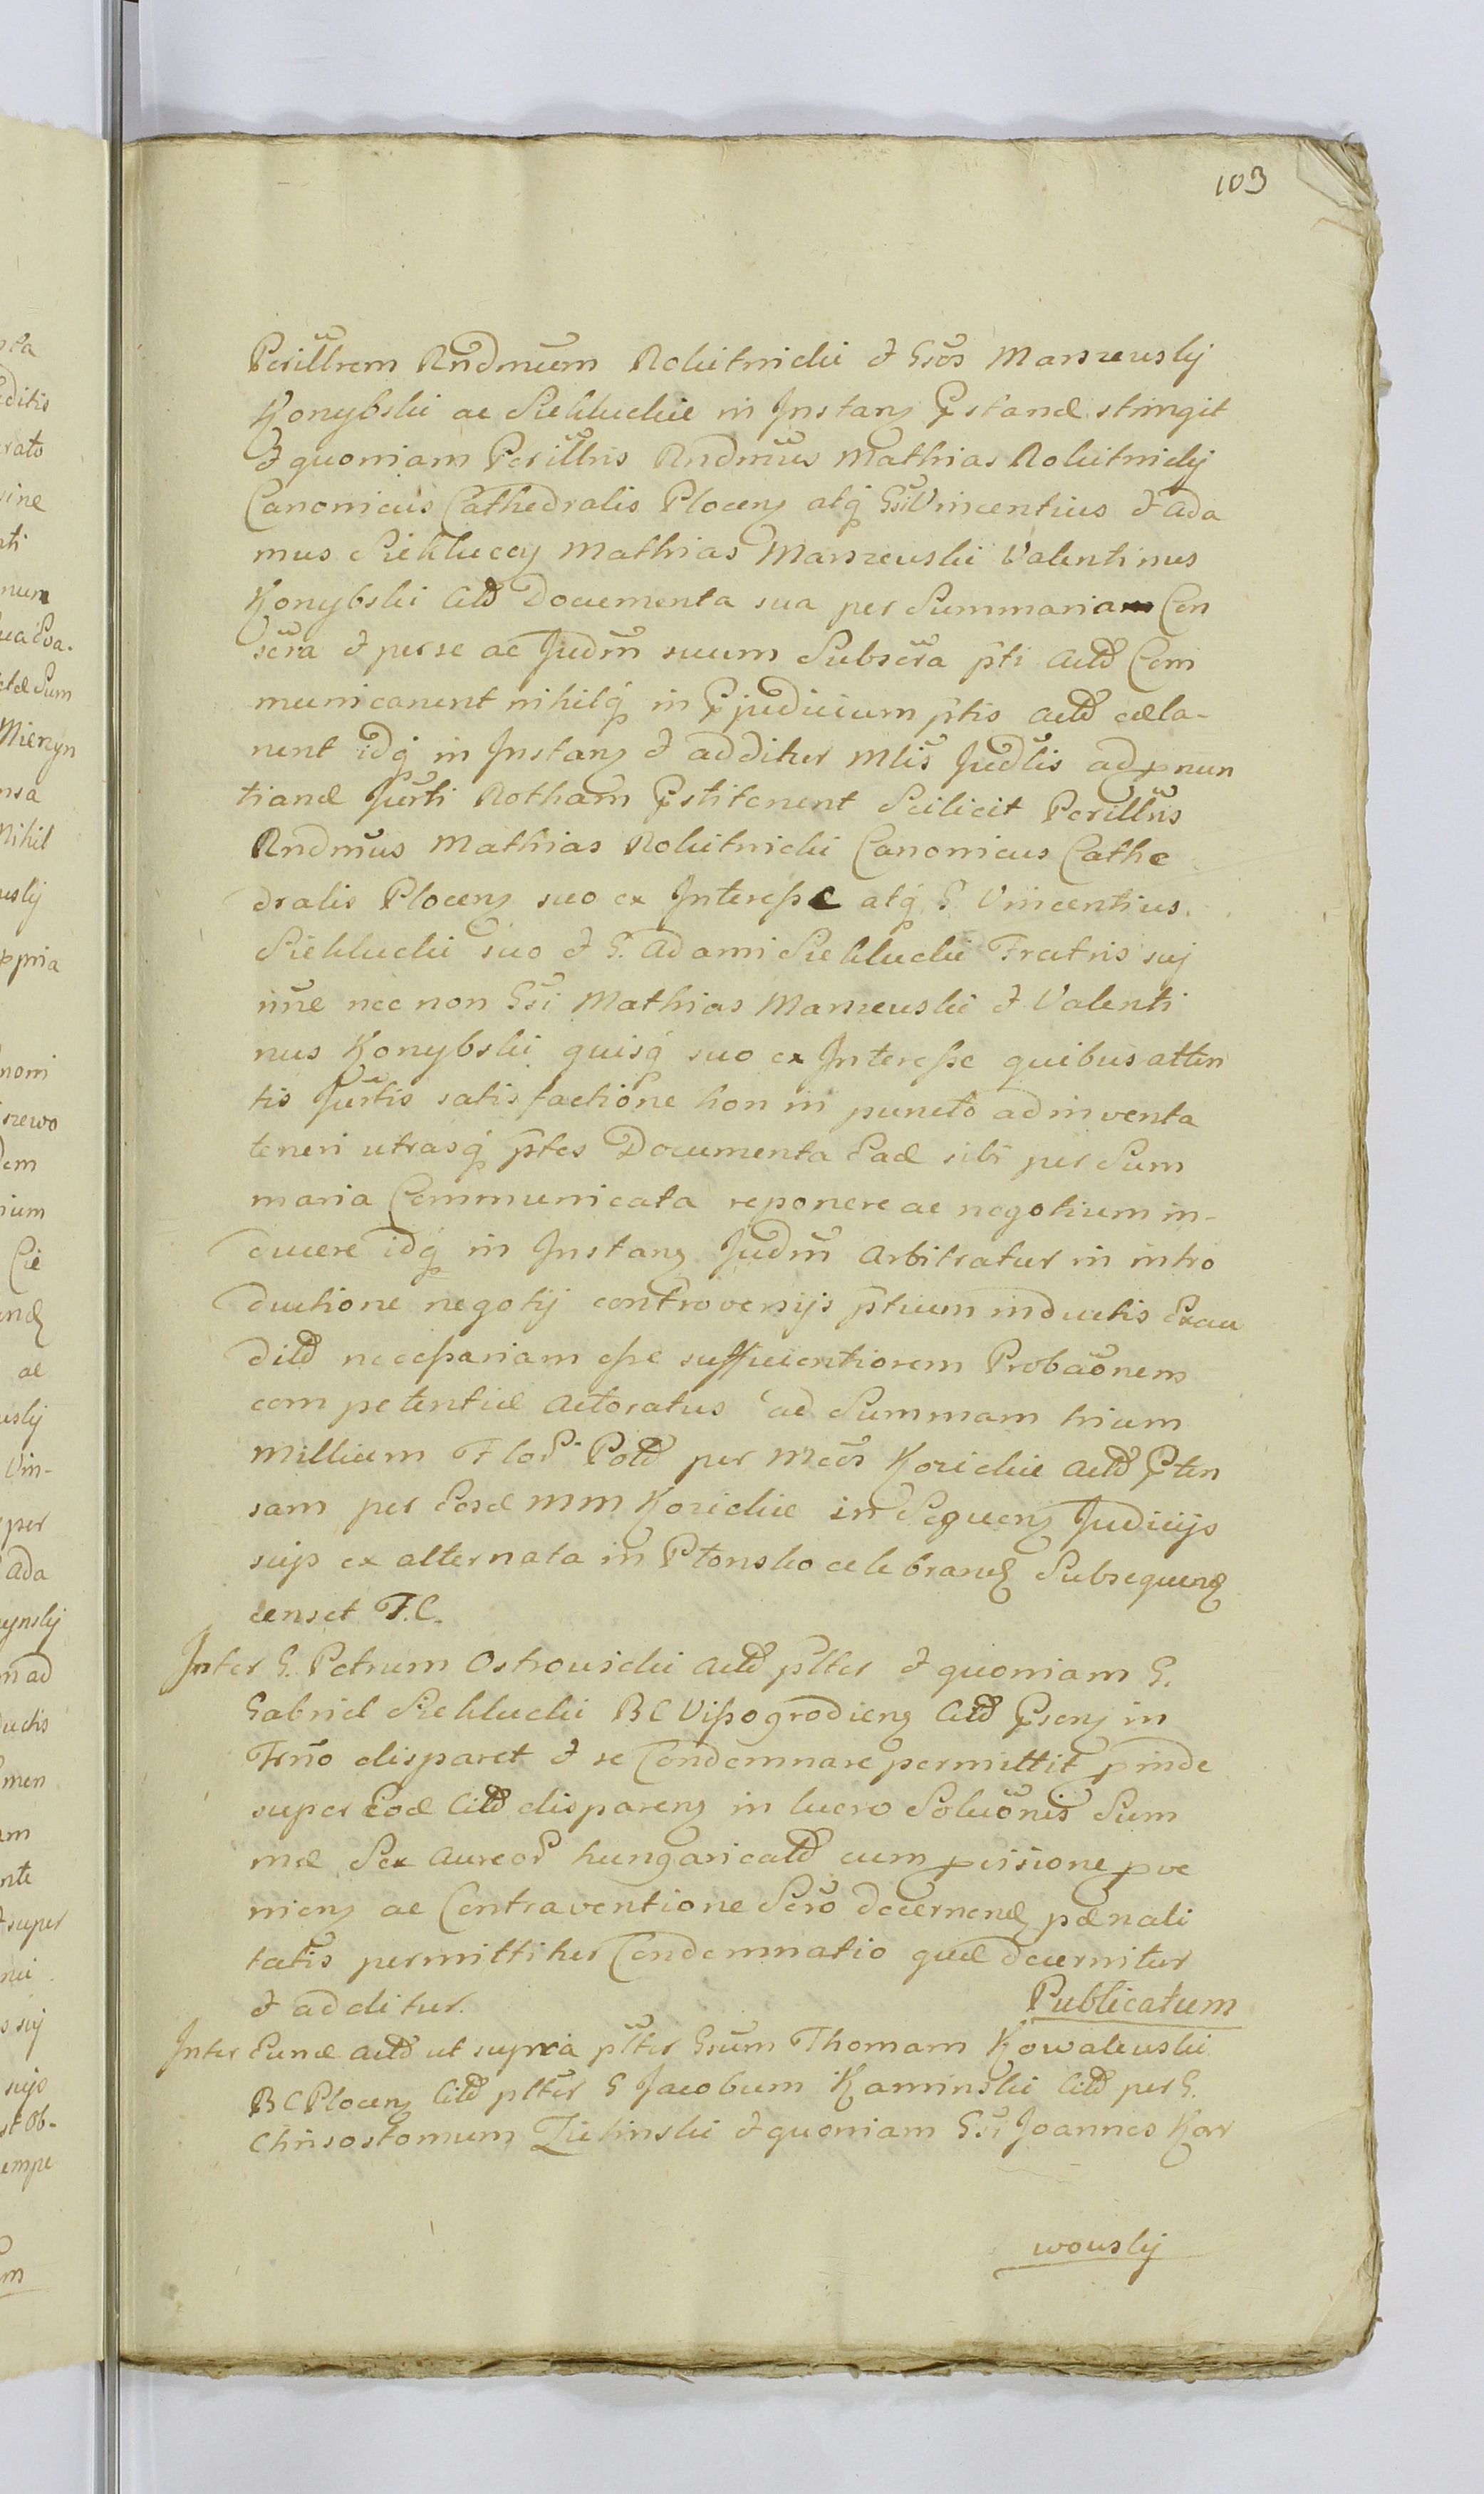 103
Perillrem Rndmum Rokitnicki & Gsos Marszewskij
Konybski ac Siekluckie in Instanz Pstand stringit
& quoniam Perillris Rndmus Mathias Rokitnickij
Canonicus Cathedralis Plocenz atq Gsi Vincentius & Ada
mus Siekluccy Mathias Marszewski Valentinus
Konybski Citd Documenta sua per Summariam Con
scra & per se ac Judm suum Subscra pti Actd Com
municarent nihilq in Pjudicium ptis actd cela-
rent idq in Instanz & additur Mlis Judlis ad pnun
tiand Jurti Rotham Pstiterent Scilicit Perillris
Rndmus Mathias Rokitnicki Canonicus Cathe
dralis Plocenz suo ex Interesse atq G. Vincentius
Sieklucki suo & G. Adami Sieklucki Fratris suj
nne nec non Gsi Mathias Marszewski & Valenti
nus Konybski quisq suo ex Interesse quibus atten
tis Jurtis satisfactione hon in puncto adinventa
teneri utrasq ptes Documenta Ead sibi per Sum
maria Communicata reponere ac negotium in-
ducere idq in Instanz Judm Arbitratur in intro
ductione negotij controversijs ptium inductis Exau
ditd necessariam esse sufficientiorem Probaonem
competentiæ Actoratus ad Summam trium
Millium Flor. Pold per Mcos Kozickie Actd Pten
sam per Eosd MM Kozickie in Sequenz Judicijs
suis ex alternata in Plonsko celebrand Subsequend
censet F.C.
Inter G. Petrum Ostrowicki Actd plter & quoniam G.
Gabriel Sieklucki BC Vissogrodienz Citd Psenz in
Trno disparet & se Condemnare permittit pinde
super Eod Citd disparenz in lucro Soluonis Sum
mæ Sex Aureor hungaricald cum pvisione pve
nienz ac Contraventione Scro decernend pænali
tatis permittitur Condemnatio quæ decernitur
& additur.
Publicatum
Inter Eund Actd ut supra plter Gsum Thomam Kowalewski
BC Plocenz Citd plter G Jacobum Kaminski Citd per G.
Chrisostomum Zielinski & quoniam Gsi Joannes Kar
wowskij